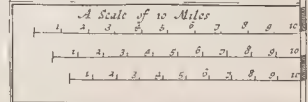 A Scale of 10 Miles
1 2 3 4 5 6 7 8 9 10
1 2 3 4 5 6 7 8 9 10
1 2 3 4 5 6 7 8 9 10